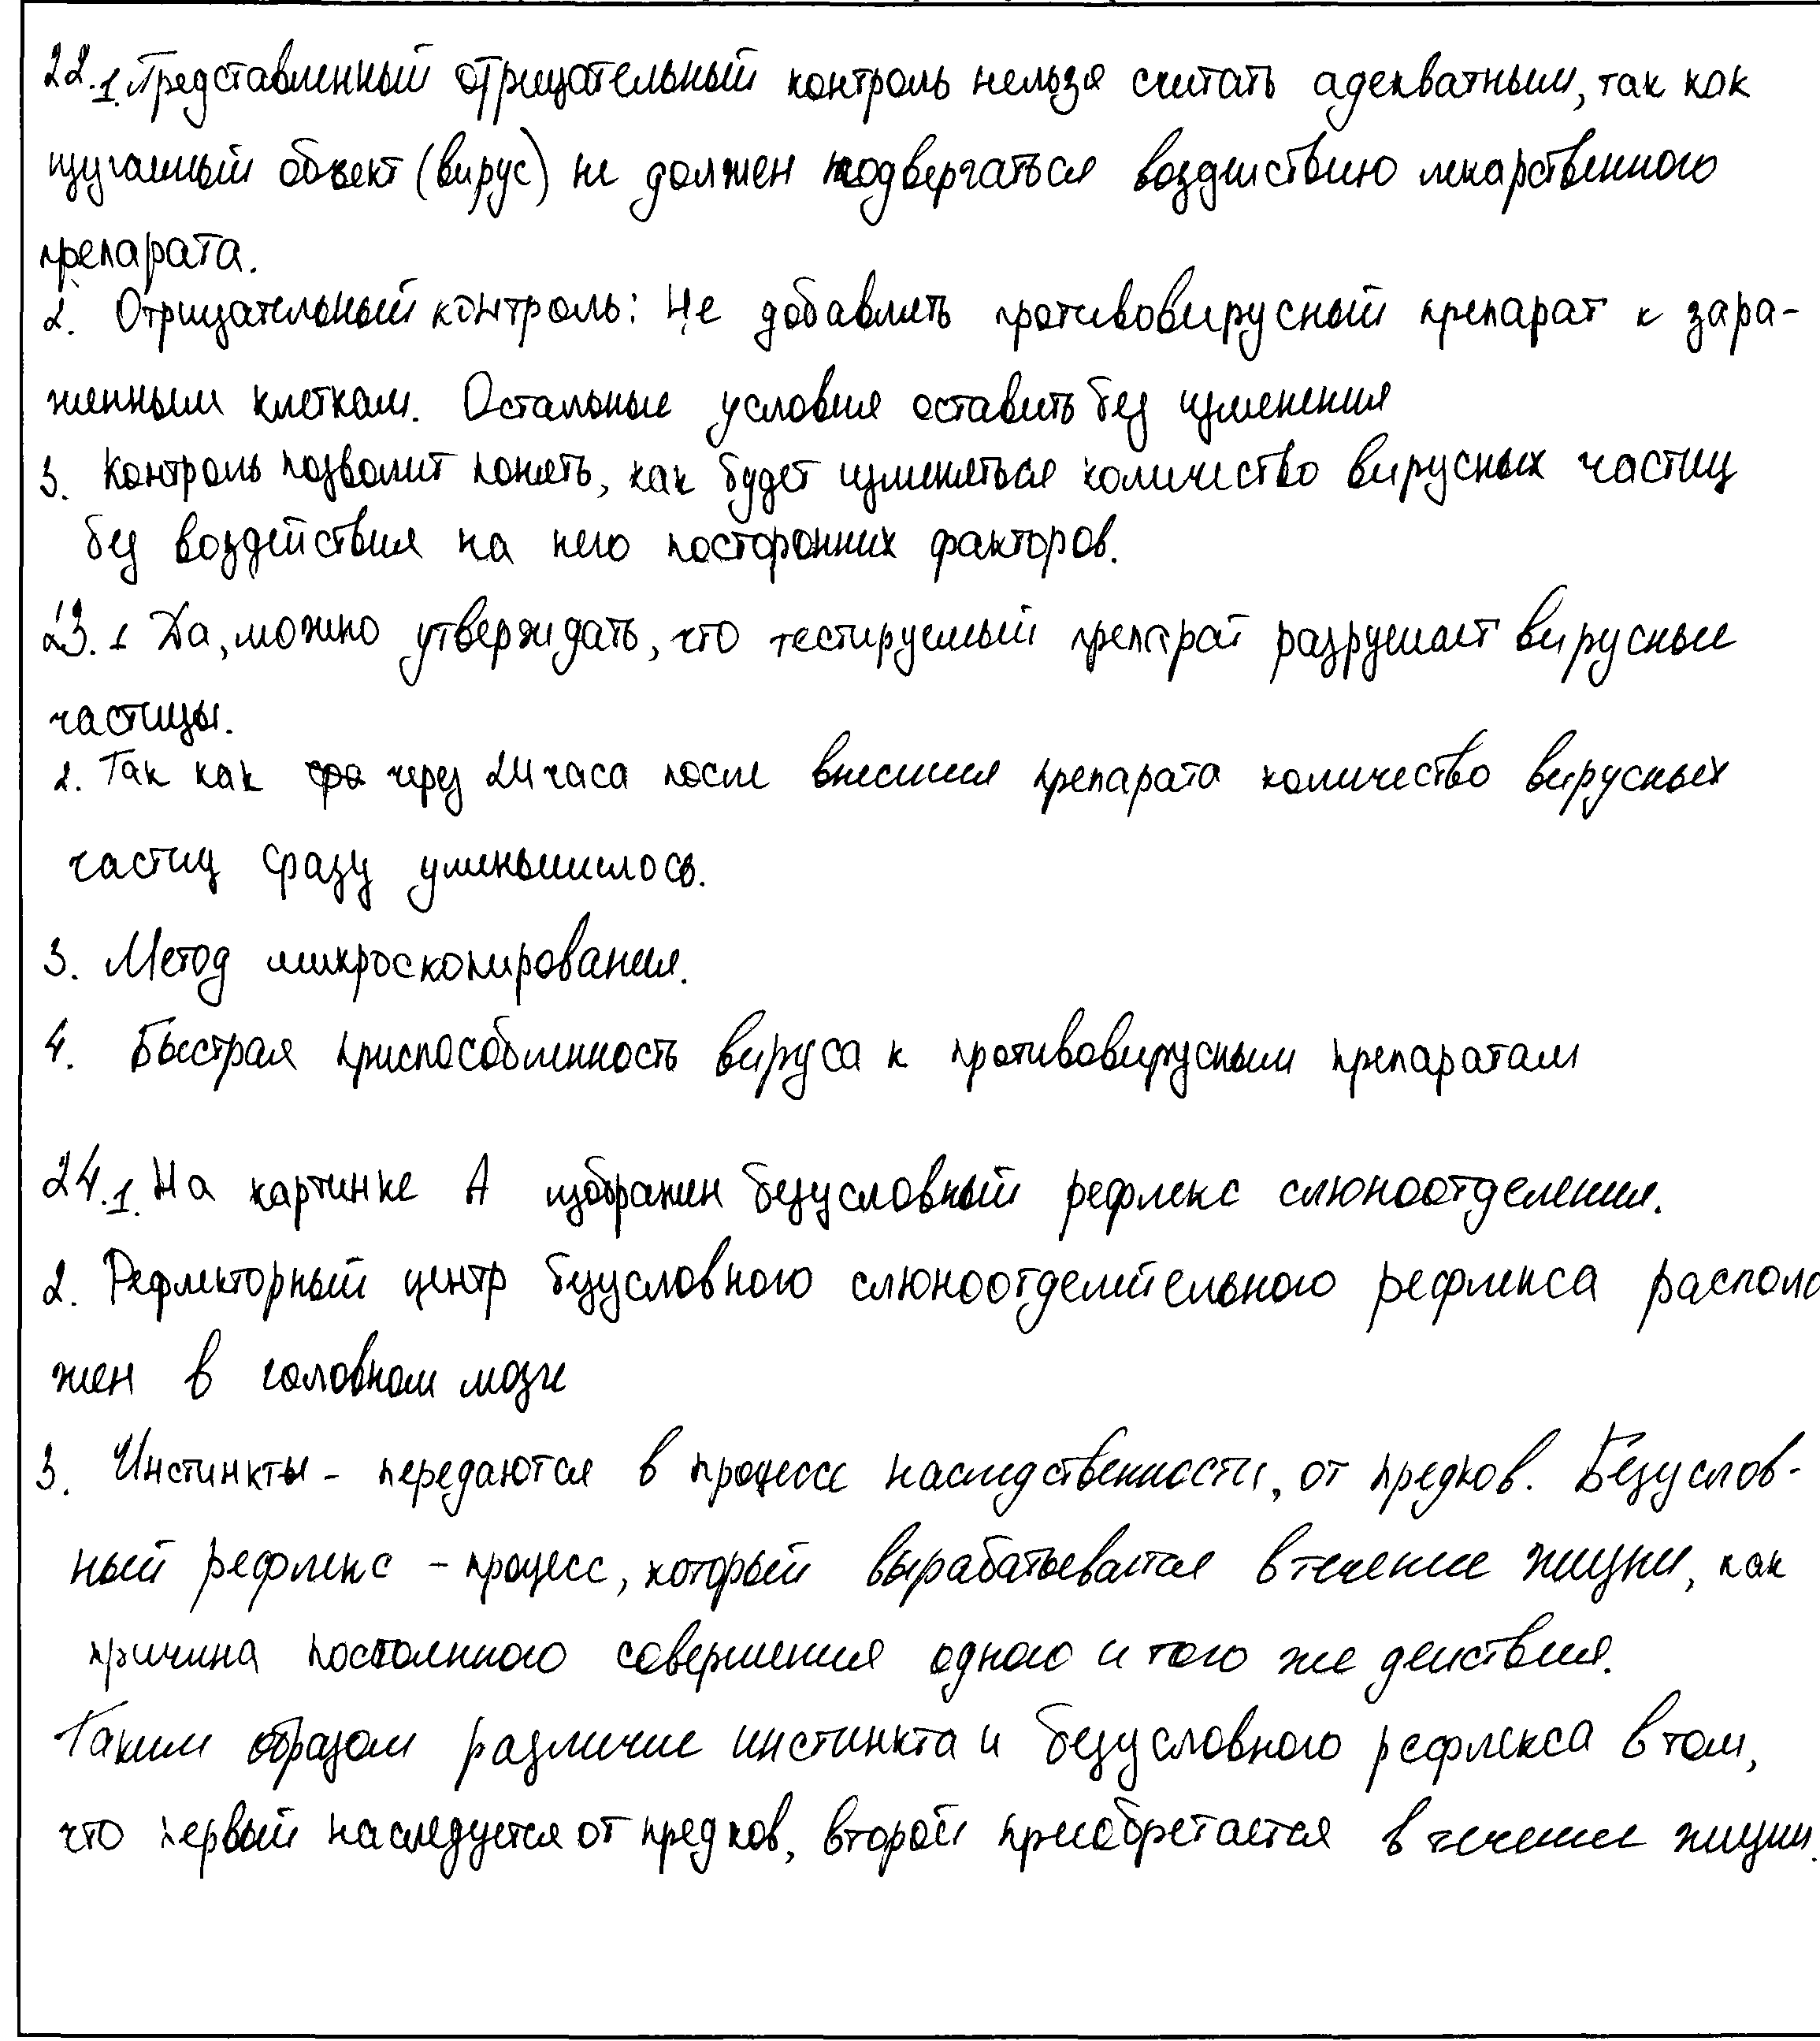 22.1. Представленный отрицательный контроль нельзя считать адекватным, так как
изучаемый объект (вирус) не должен подвергаться воздействию лекарственного
препарата.
2. Отрицательный контроль: Не добавлять противовирусный препарат к зара-
женным клеткам. Остальные условия оставить без изменения
3. Контроль позволит понять, как будет изменяться количество вирусных частиц
без воздействия на него посторонних факторов.
23.1 Да, можно утверждать, что тестируемый препарат разрушает вирусные
частицы.
2. Так как через 24 часа после внесения препарата количество вирусных
частиц сразу уменьшилось.
3. Метод микроскопирования.
4. Быстрая приспособленность вируса к противовирусным препаратам
24.1. На картинке А изображен безусловный рефлекс слюноотделения.
2. Рефлекторный центр безусловного слюноотделительного рефлекса располо
жен в головном мозге
3. Инстинкты - передаются в процессе наследственности, от предков. Безуслов-
ный рефлекс - процесс, который вырабатывается в течение жизни, как
причина постоянного совершения одного и того же действия.
Таким образом различие инстинкта и безусловного рефлекса в том,
что первый наследуется от предков, второй приобретается в течение жизни.